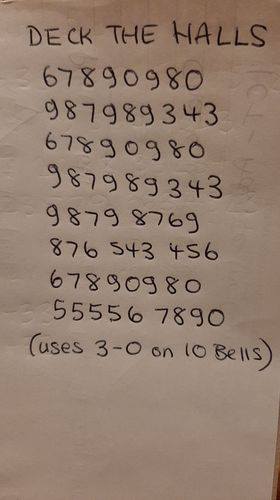 DECK THE HALLS
67890980
987989343
67890980
987989343
9879 8769
876 543 456
67890980
55556 7890
(uses 3-0 on 10 Bells)